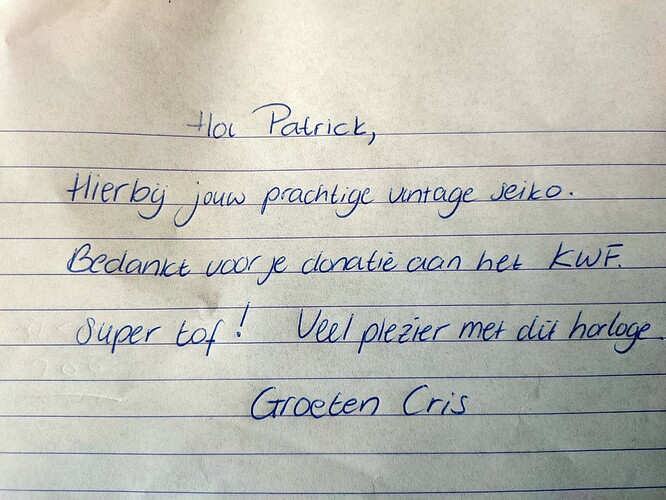 Hoi Patrick,
Hierbij jouw prachtige vintage seiko.
Bedankt voor je donatie aan het KWF.
Super tof! Veel plezier met dit horloge.
Groeten Cris